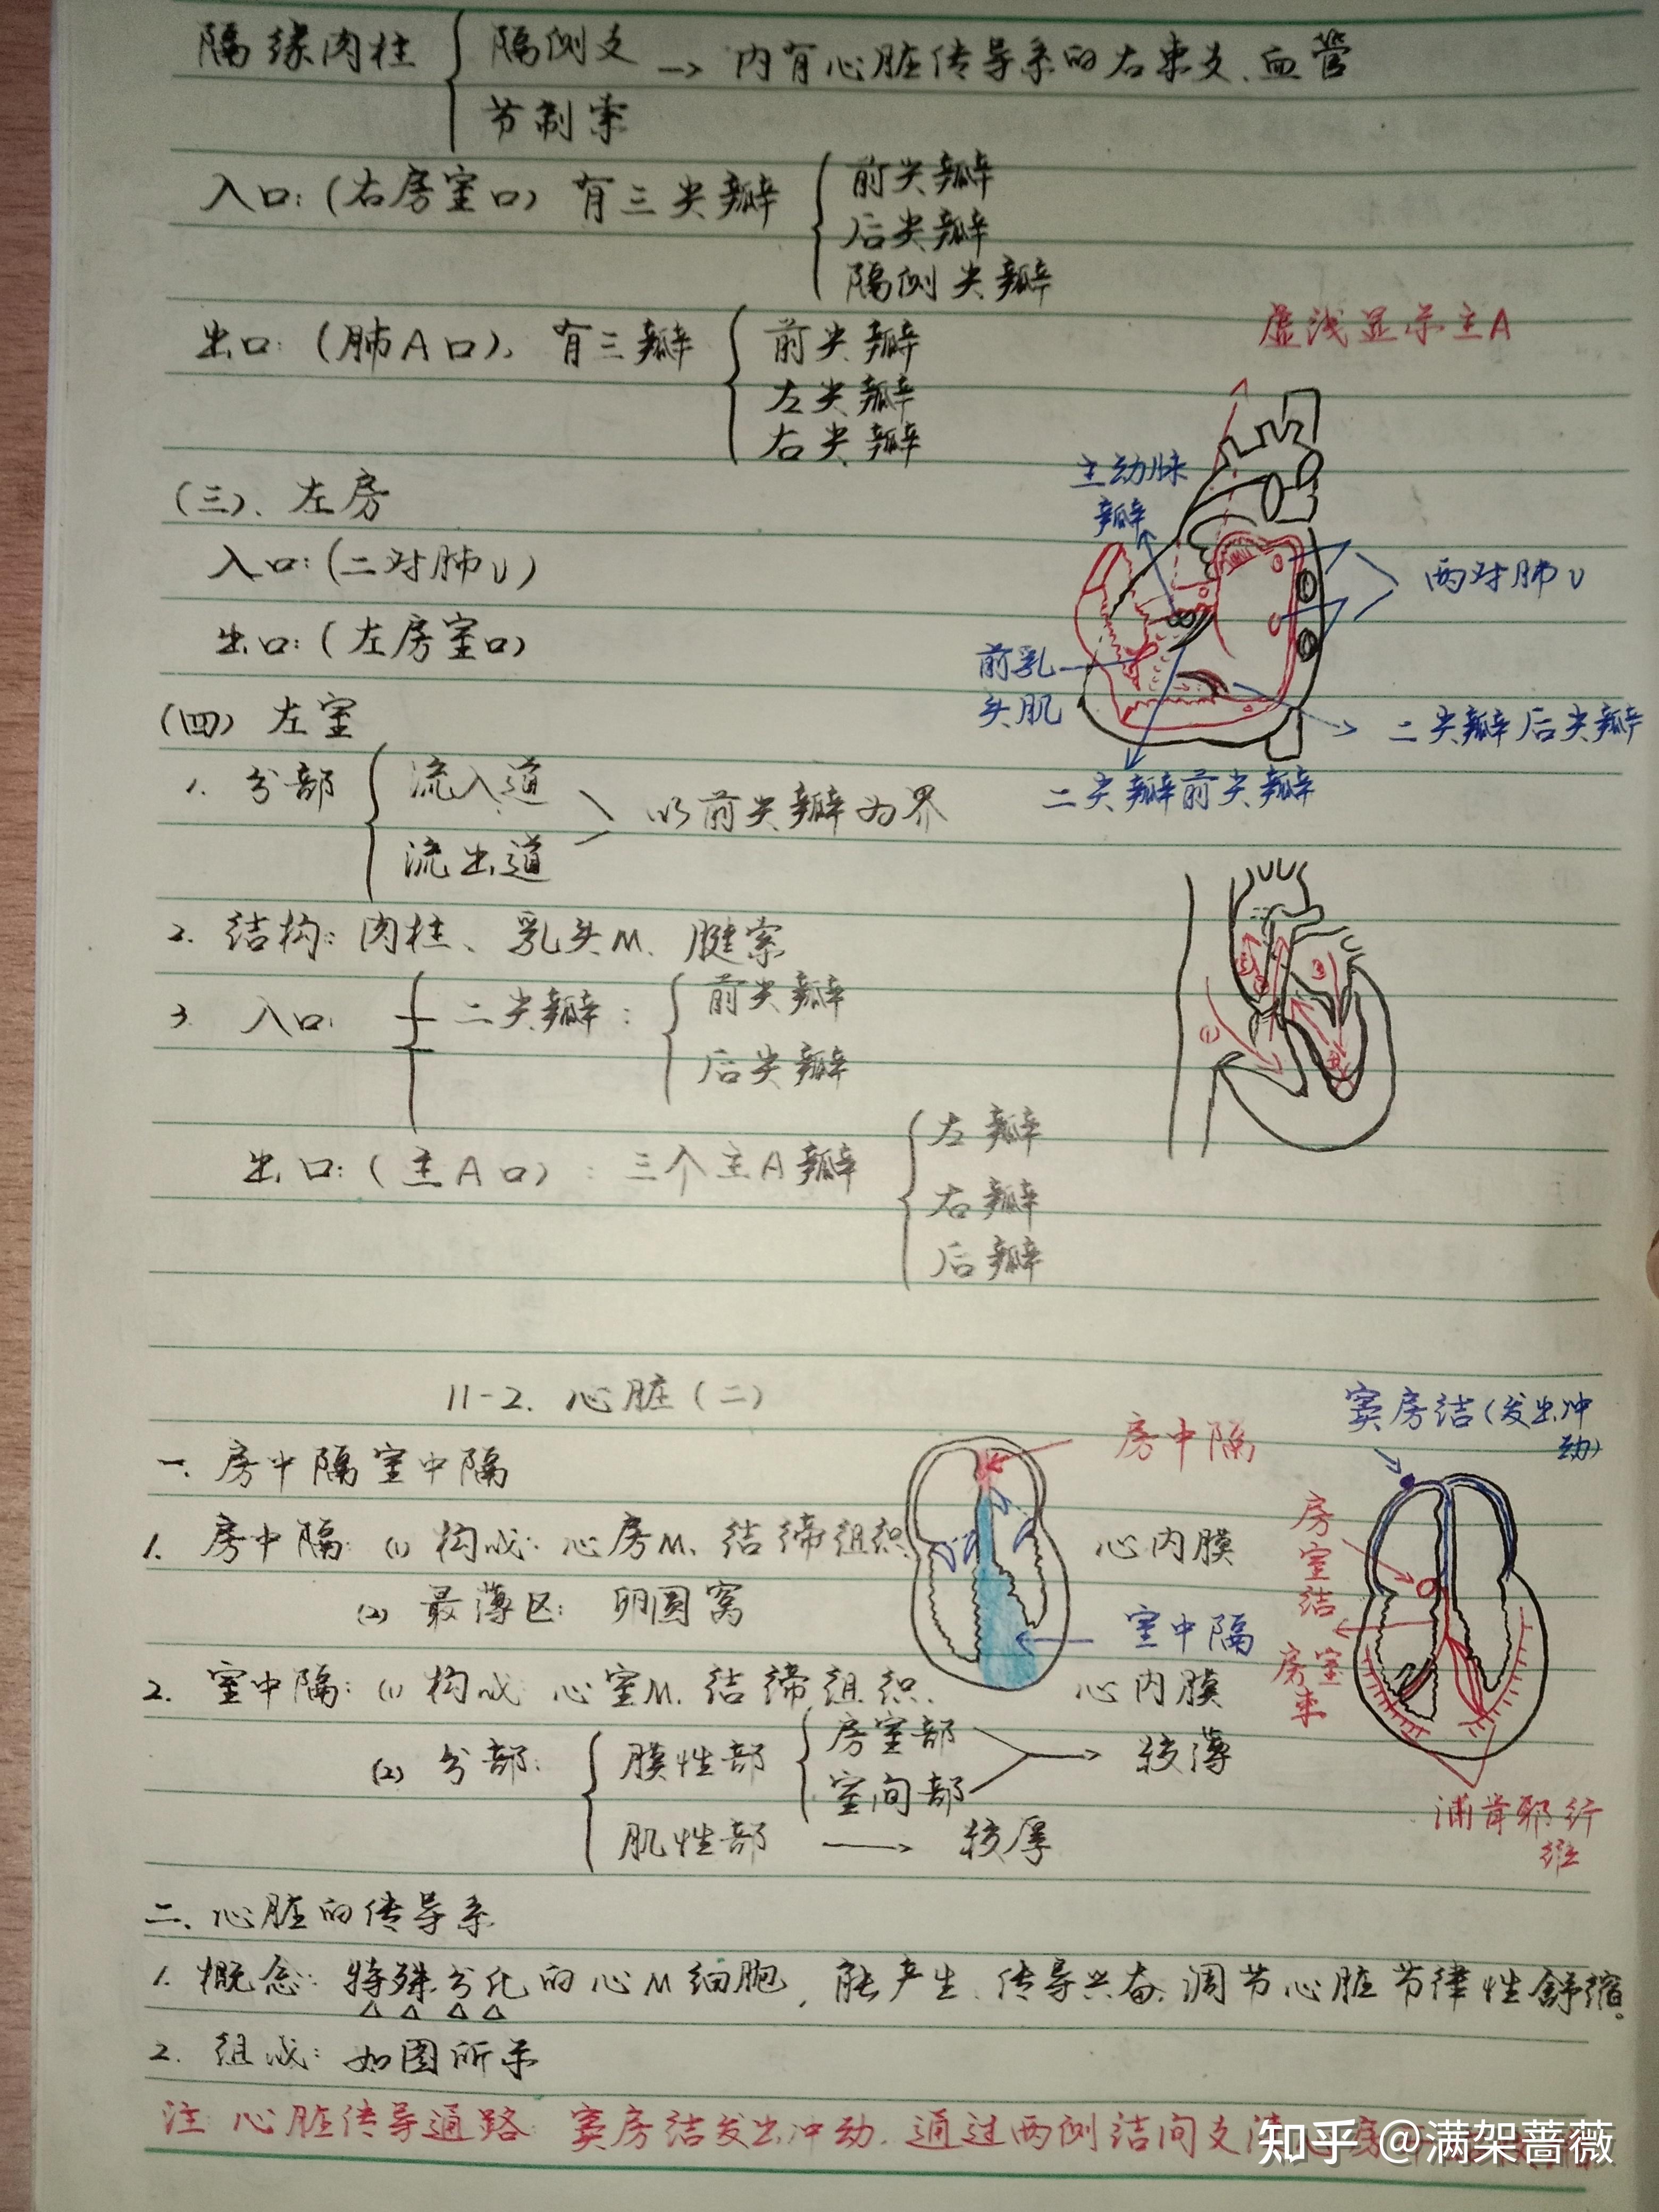 隔缘肉柱 { 隔侧支 → 内有心脏传导系的右束支、血管
节制索
入口:(右房室口) 有三尖瓣 { 前尖瓣
后尖瓣
隔侧尖瓣
出口:(肺A口), 有三瓣 { 前尖瓣
左尖瓣
右尖瓣
虚浅显示主A
主动脉
瓣
两对肺V
前乳
头肌
二尖瓣后尖瓣
二尖瓣前尖瓣
(三)、左房
入口:(二对肺V)
出口:(左房室口)
(四) 左室
1. 分部 { 流入道
流出道
以前尖瓣为界
2. 结构: 肉柱、乳头M、腱索
3. 入口: 二尖瓣: { 前尖瓣
后尖瓣
出口:(主A口): 三个主A瓣 { 左瓣
右瓣
后瓣
11-2. 心脏(二)
一. 房中隔室中隔
1. 房中隔: (1) 构成: 心房M、结缔组织、心内膜
(2) 最薄区: 卵圆窝
2. 室中隔: (1) 构成: 心室M、结缔组织、心内膜
(2) 分部: { 膜性部 { 房室部
室间部
→ 较薄
肌性部 → 较厚
房中隔
室中隔
窦房结(发出冲
动)
房室结
房室束
浦肯野纤
维
二、心脏的传导系
1. 概念: 特殊分化的心M细胞, 能产生、传导兴奋、调节心脏节律性舒缩。
2. 组成: 如图所示
注: 心脏传导通路: 窦房结发出冲动, 通过两侧结间支
知乎 @满架蔷薇